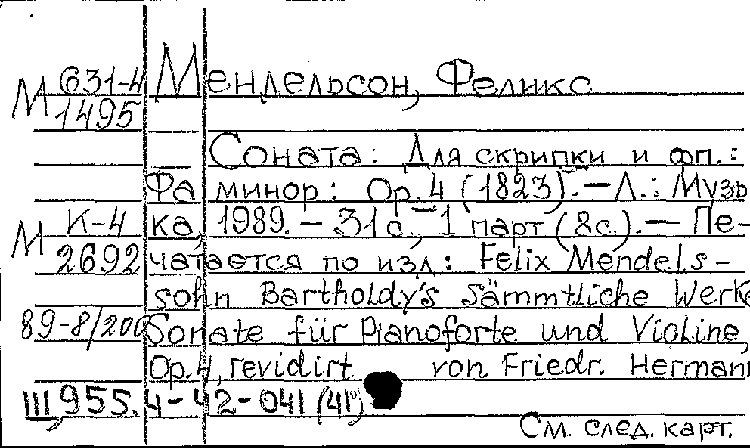 М 631-4 Мендельсон, Феликс
1495
Соната: Для скрипки и фп.:
Фа минор: Ор. 4 (1823). — Л.: Музы
М К-4 ка, 1989. — 31 с., 1 парт (8 с.). — Пе-
2692 чатается по изд: Felix Mendels-
sohn Bartholdy's sämmtliche Werke
89-8/200 Sonate für Pianoforte und Violine,
Op. 4, revidirt von Friedr. Hermann
III, 955. 4-42-041 (41)
См. след. карт.